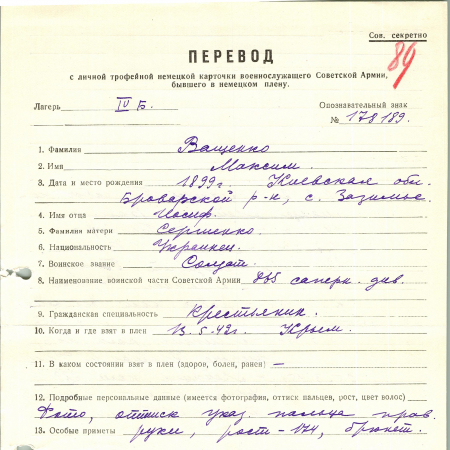 Сов. секретно
89
ПЕРЕВОД
с личной трофейной немецкой карточки военнослужащего Советской Армии,
бывшего в немецком плену.
Лагерь IV Б. Опознавательный знак
№ 178189.
1. Фамилия Ващенко
2. Имя Максим.
3. Дата и место рождения 1899г. Киевская обл.
Броварской р-н, с. Зазимье.
4. Имя отца Иосиф.
5. Фамилия матери Сергиенко
6. Национальность Украинец.
7. Воинское звание Солдат.
8. Наименование воинской части Советской Армии саперн. див.
9. Гражданская специальность Крестьянин.
10. Когда и где взят в плен 13.5.42г. Крым.
11. В каком состоянии взят в плен (здоров, болен, ранен) —
12. Подробные персональные данные (имеется фотография, оттиск пальцев, рост, цвет волос)
Фото, оттиск указ. пальца прав.
13. Особые приметы руки, рост-174, брюнет.